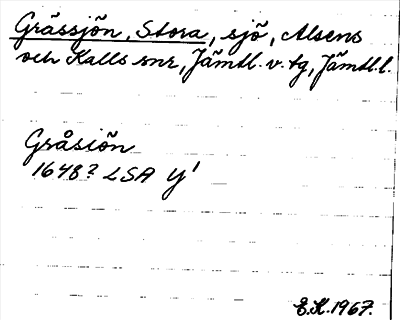 Grässjön, Stora, sjö, Alsens
och Kalls snr, Jämtl. v. tg, Jämtl. l.
Gråsiön
1648? LSA Y¹
E.K. 1967.